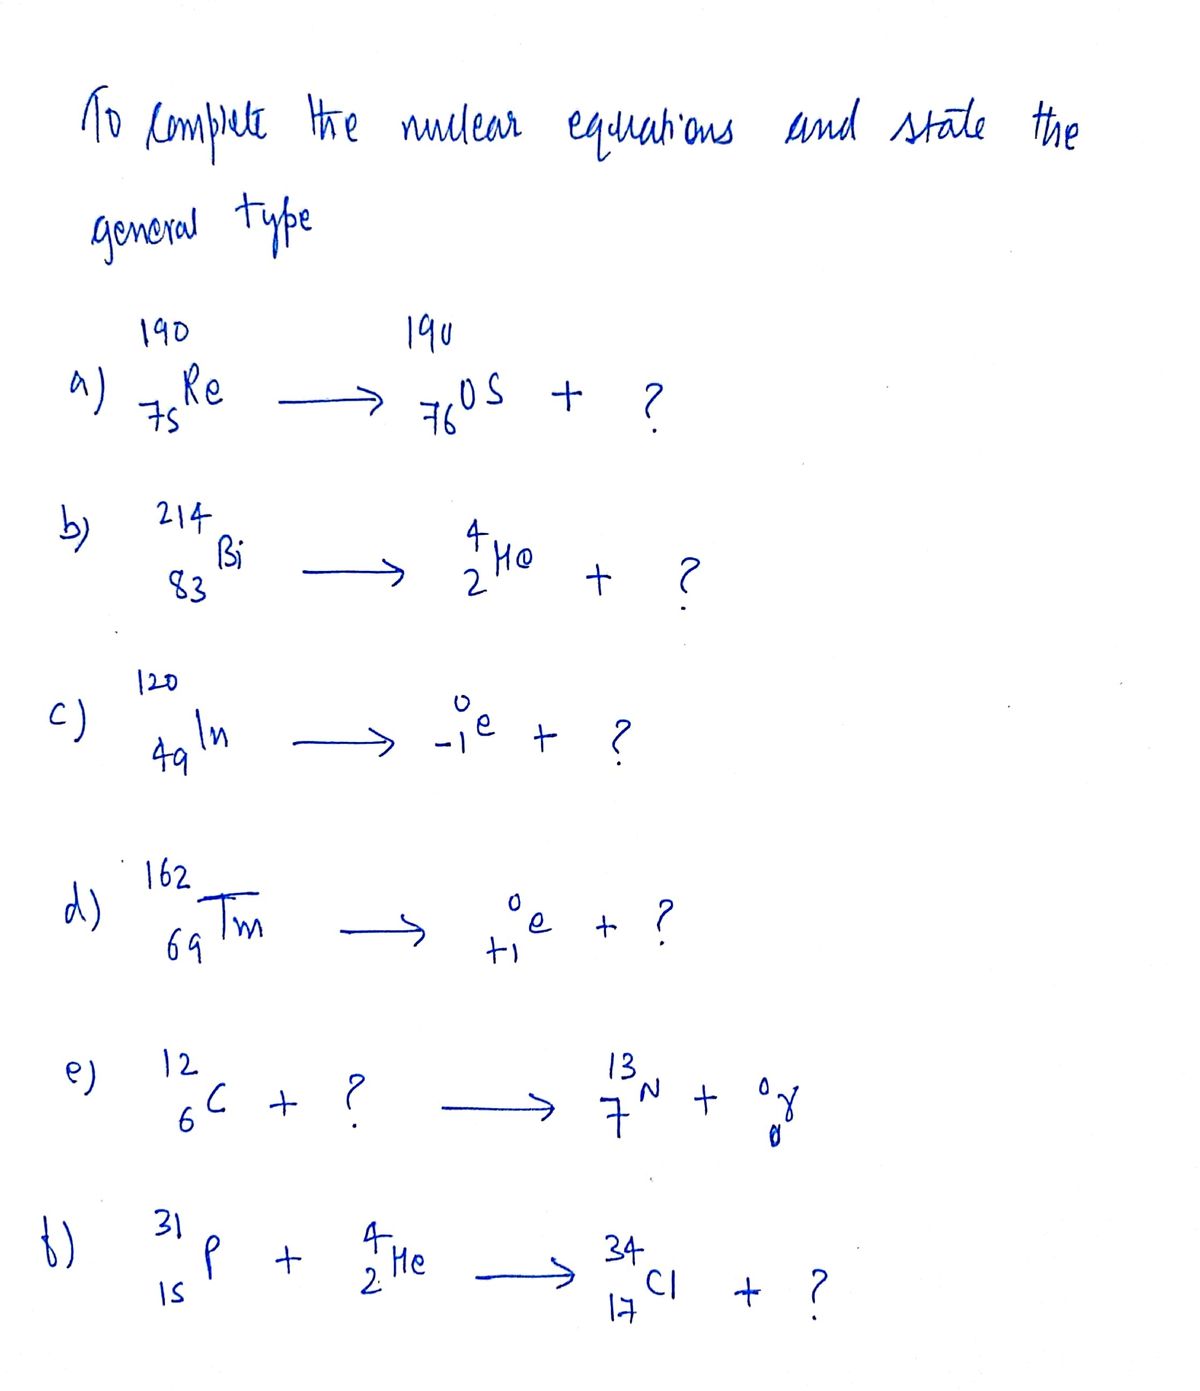 To complete the nuclear equations and state the
general type
a) ¹⁹⁰₇₅Re ⟶ ¹⁹⁰₇₆Os + ?
b) ²¹⁴₈₃Bi ⟶ ⁴₂He + ?
c) ¹²⁰₄₉In ⟶ ⁰₋₁e + ?
d) ¹⁶²₆₉Tm ⟶ ⁰₊₁e + ?
e) ¹²₆C + ? ⟶ ¹³₇N + ⁰₀γ
f) ³¹₁₅P + ⁴₂He ⟶ ³⁴₁₇Cl + ?